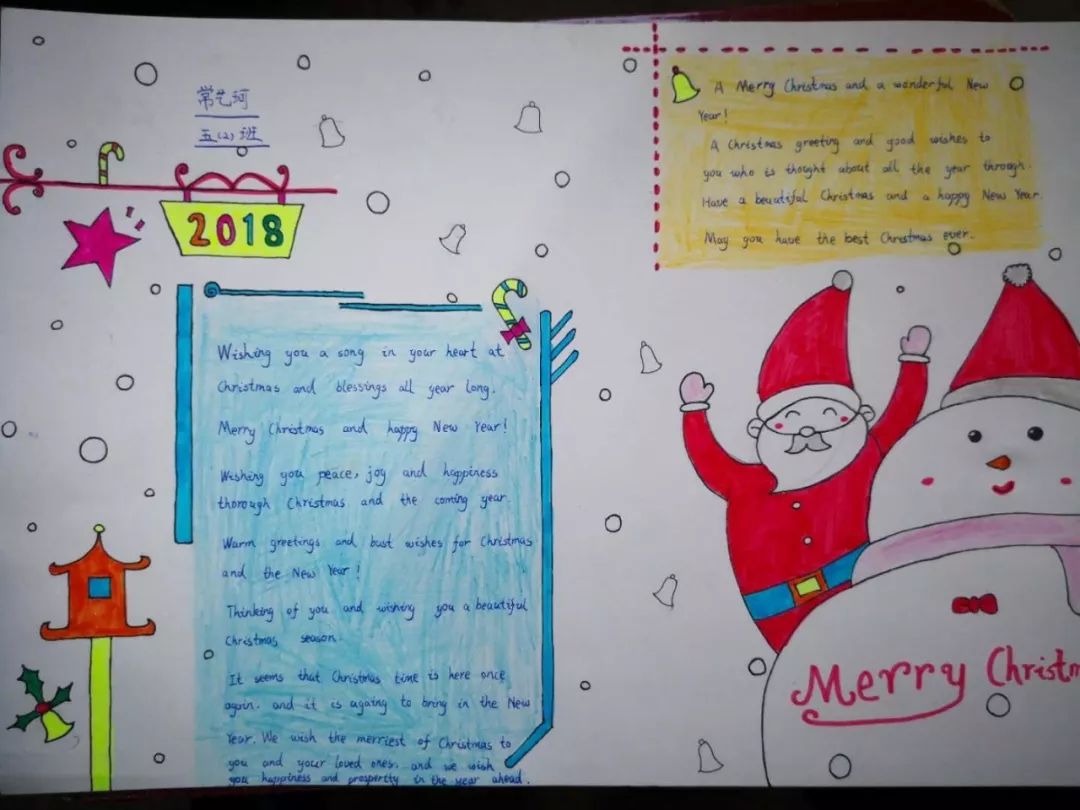 常艺珂
五(2)班
2018
A Merry Christmas and a wonderful New
Year!
A Christmas greeting and good wishes to
you who is thought about all the year through.
Have a beautiful Christmas and a happy New Year.
May you have the best Christmas ever.
Wishing you a song in your heart at
Christmas and blessings all year long.
Merry Christmas and happy New Year!
Wishing you peace, joy and happiness
thorough Christmas and the coming year.
Warm greetings and bust wishes for Christmas
and the New Year!
Thinking of you and wishing you a beautiful
Christmas season.
It seems that Christmas time is here once
again. and it is againg to bring in the New
Year. We wish the merriest of Christmas to
you and your loved ones. and we wish
you happiness and prosperity in the year ahead.
Merry Christm